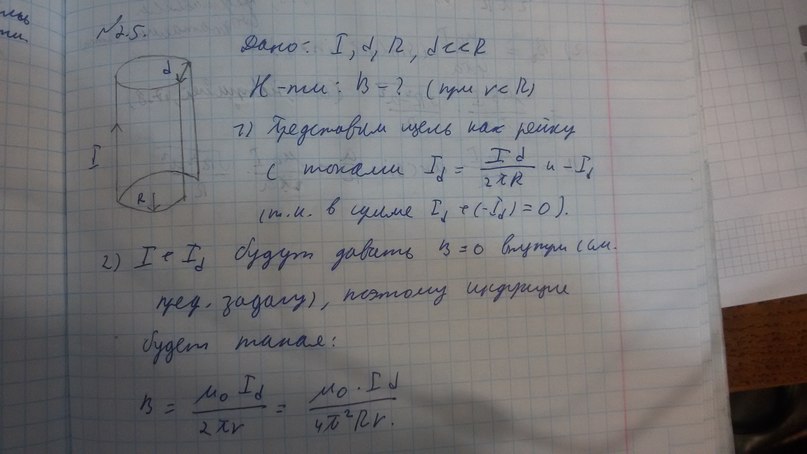 №25.
Дано: I, d, R, d<<R
Н-ти: B-? (при r<R)
1) Представим щель как рейку
с токами I_d = Id / 2πR и -I_d
(т.к. в сумме I_d + (-I_d) = 0).
2) I + I_d будут давать B=0 внутри (см.
пред. задачу), поэтому индукция
будет такая:
B = μ₀ I_d / 2πr = μ₀ · I d / 4π² R r.
d
I
R